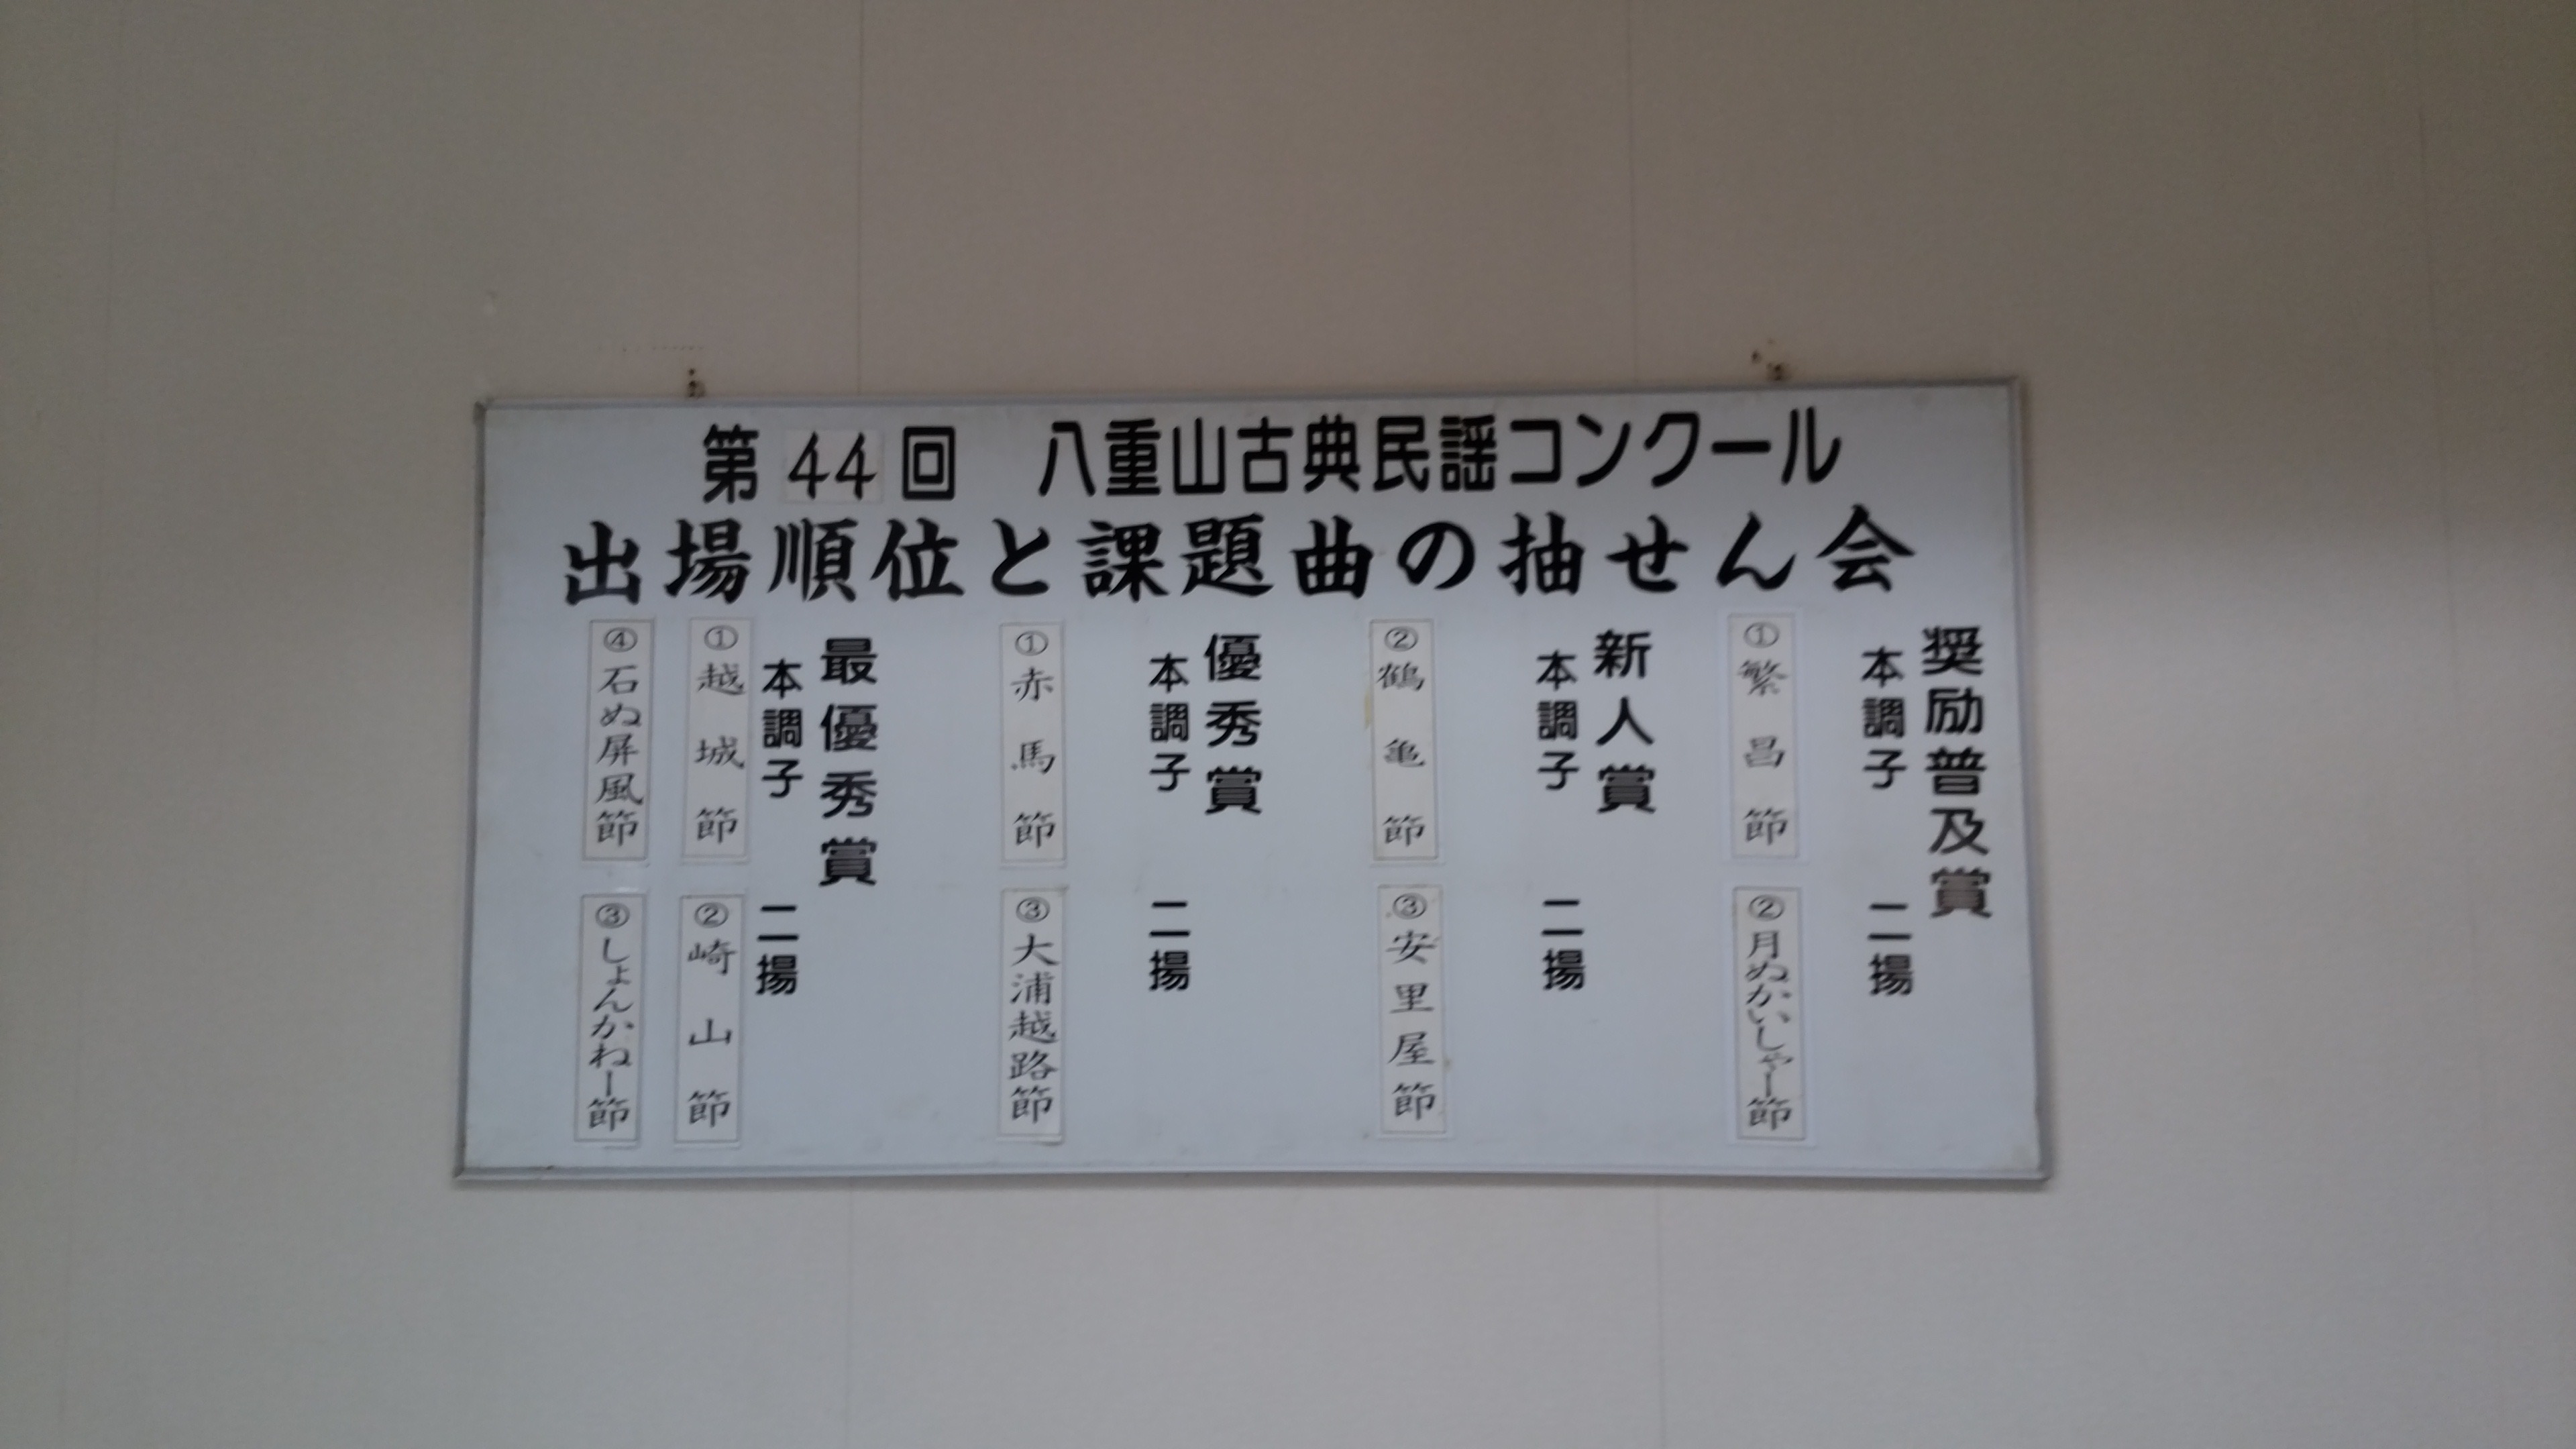 第44回 八重山古典民謡コンクール
出場順位と課題曲の抽せん会
奨励普及賞
本調子 二揚
①繁昌節
②月ぬかいしゃー節
新人賞
本調子 二揚
②鶴亀節
③安里屋節
優秀賞
本調子 二揚
①赤馬節
③大浦越路節
最優秀賞
本調子 二揚
①越城節
②崎山節
④石ぬ屏風節
③しょんかねー節